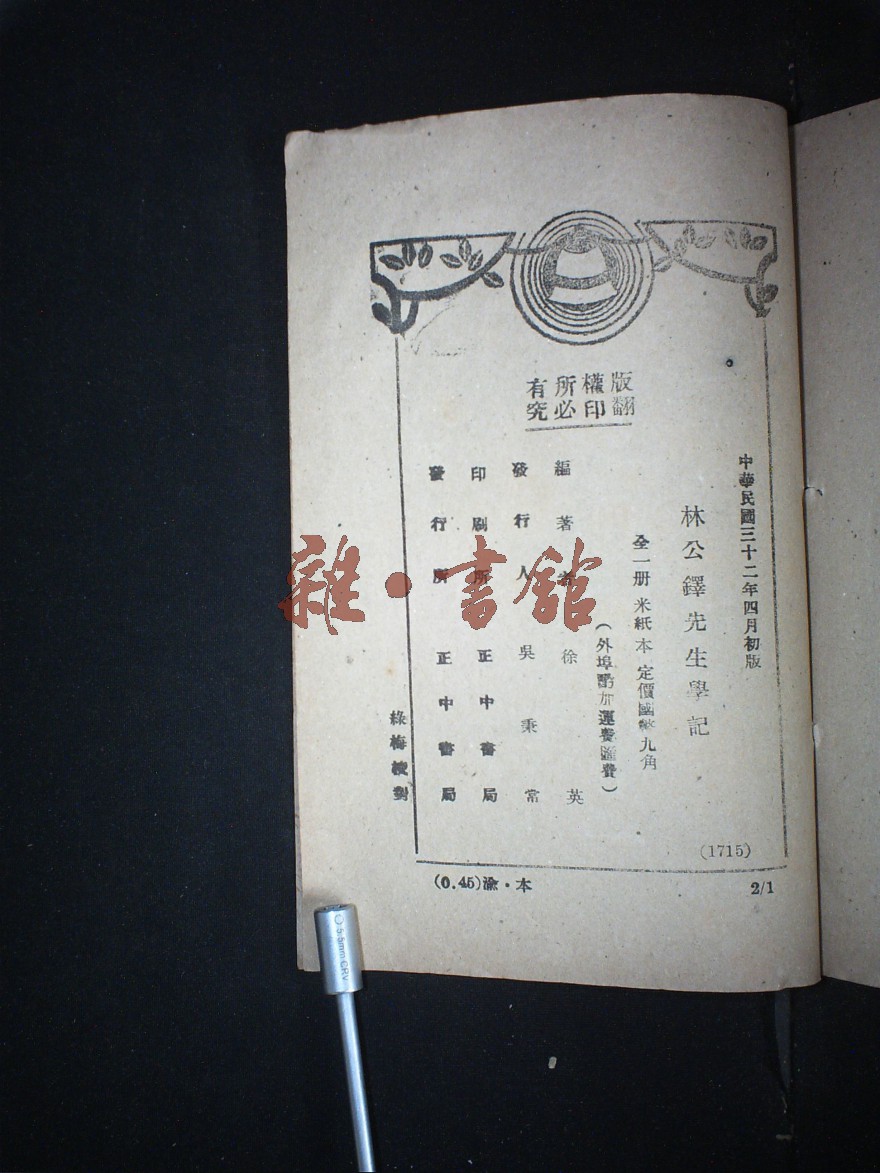 版權所有
翻印必究
中華民國三十二年四月初版
林公鐸先生學記
全一册 米紙本 定價國幣九角
(外埠酌加運費匯費)
編著者 徐英
發行人 吳秉常
印刷所 正中書局
發行所 正中書局
(1715)
(0.45)渝·本
2/1
雜·書館
5.5mm CRV